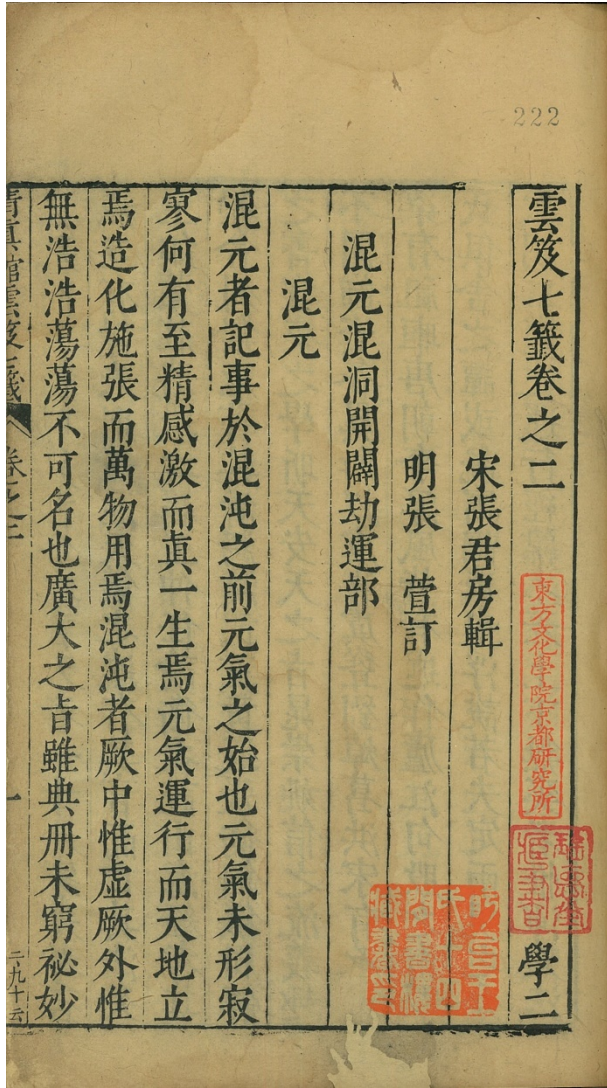 222
雲笈七籤卷之二
學二
東方文化學院京都研究所
宋張君房輯
明張 萱訂
混元混洞開闢劫運部
混元
混元者記事於混沌之前元氣之始也元氣未形寂
寥何有至精感激而眞一生焉元氣運行而天地立
焉造化施張而萬物用焉混沌者厥中惟虛厥外惟
無浩浩蕩蕩不可名也廣大之旨雖典冊未窮祕妙
清眞館雲笈七籤 卷之二 一